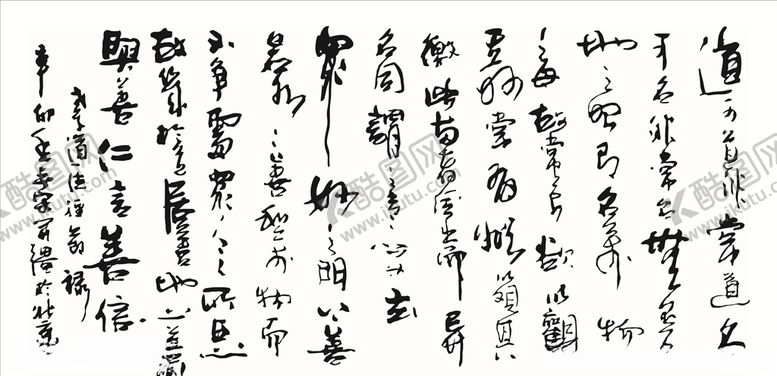 道可道非常道名
可名非常名無名天
地之始有名萬物
之母故常无欲以觀
其妙常有欲以觀其
徼此兩者同出而異
名同謂之玄玄之又玄
眾妙之門上善
若水水善利萬物而
不爭處眾人之所惡
故幾於道居善地心善淵
與善仁言善信
老子道德經節錄
辛卯年於北京
酷图网